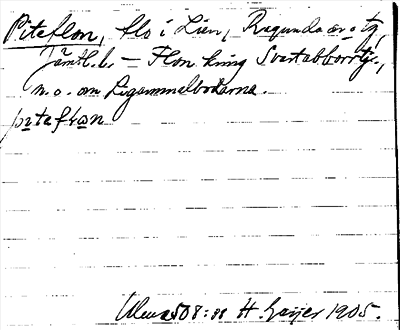 Piteflon, flo i Lien, Ragunda sn o tg,
Jämtl. l. — Flon kring Svartabborrtj.,
n.o. om Ligammelbodarna.
pıtaflon
508: H. Geijer 1905.